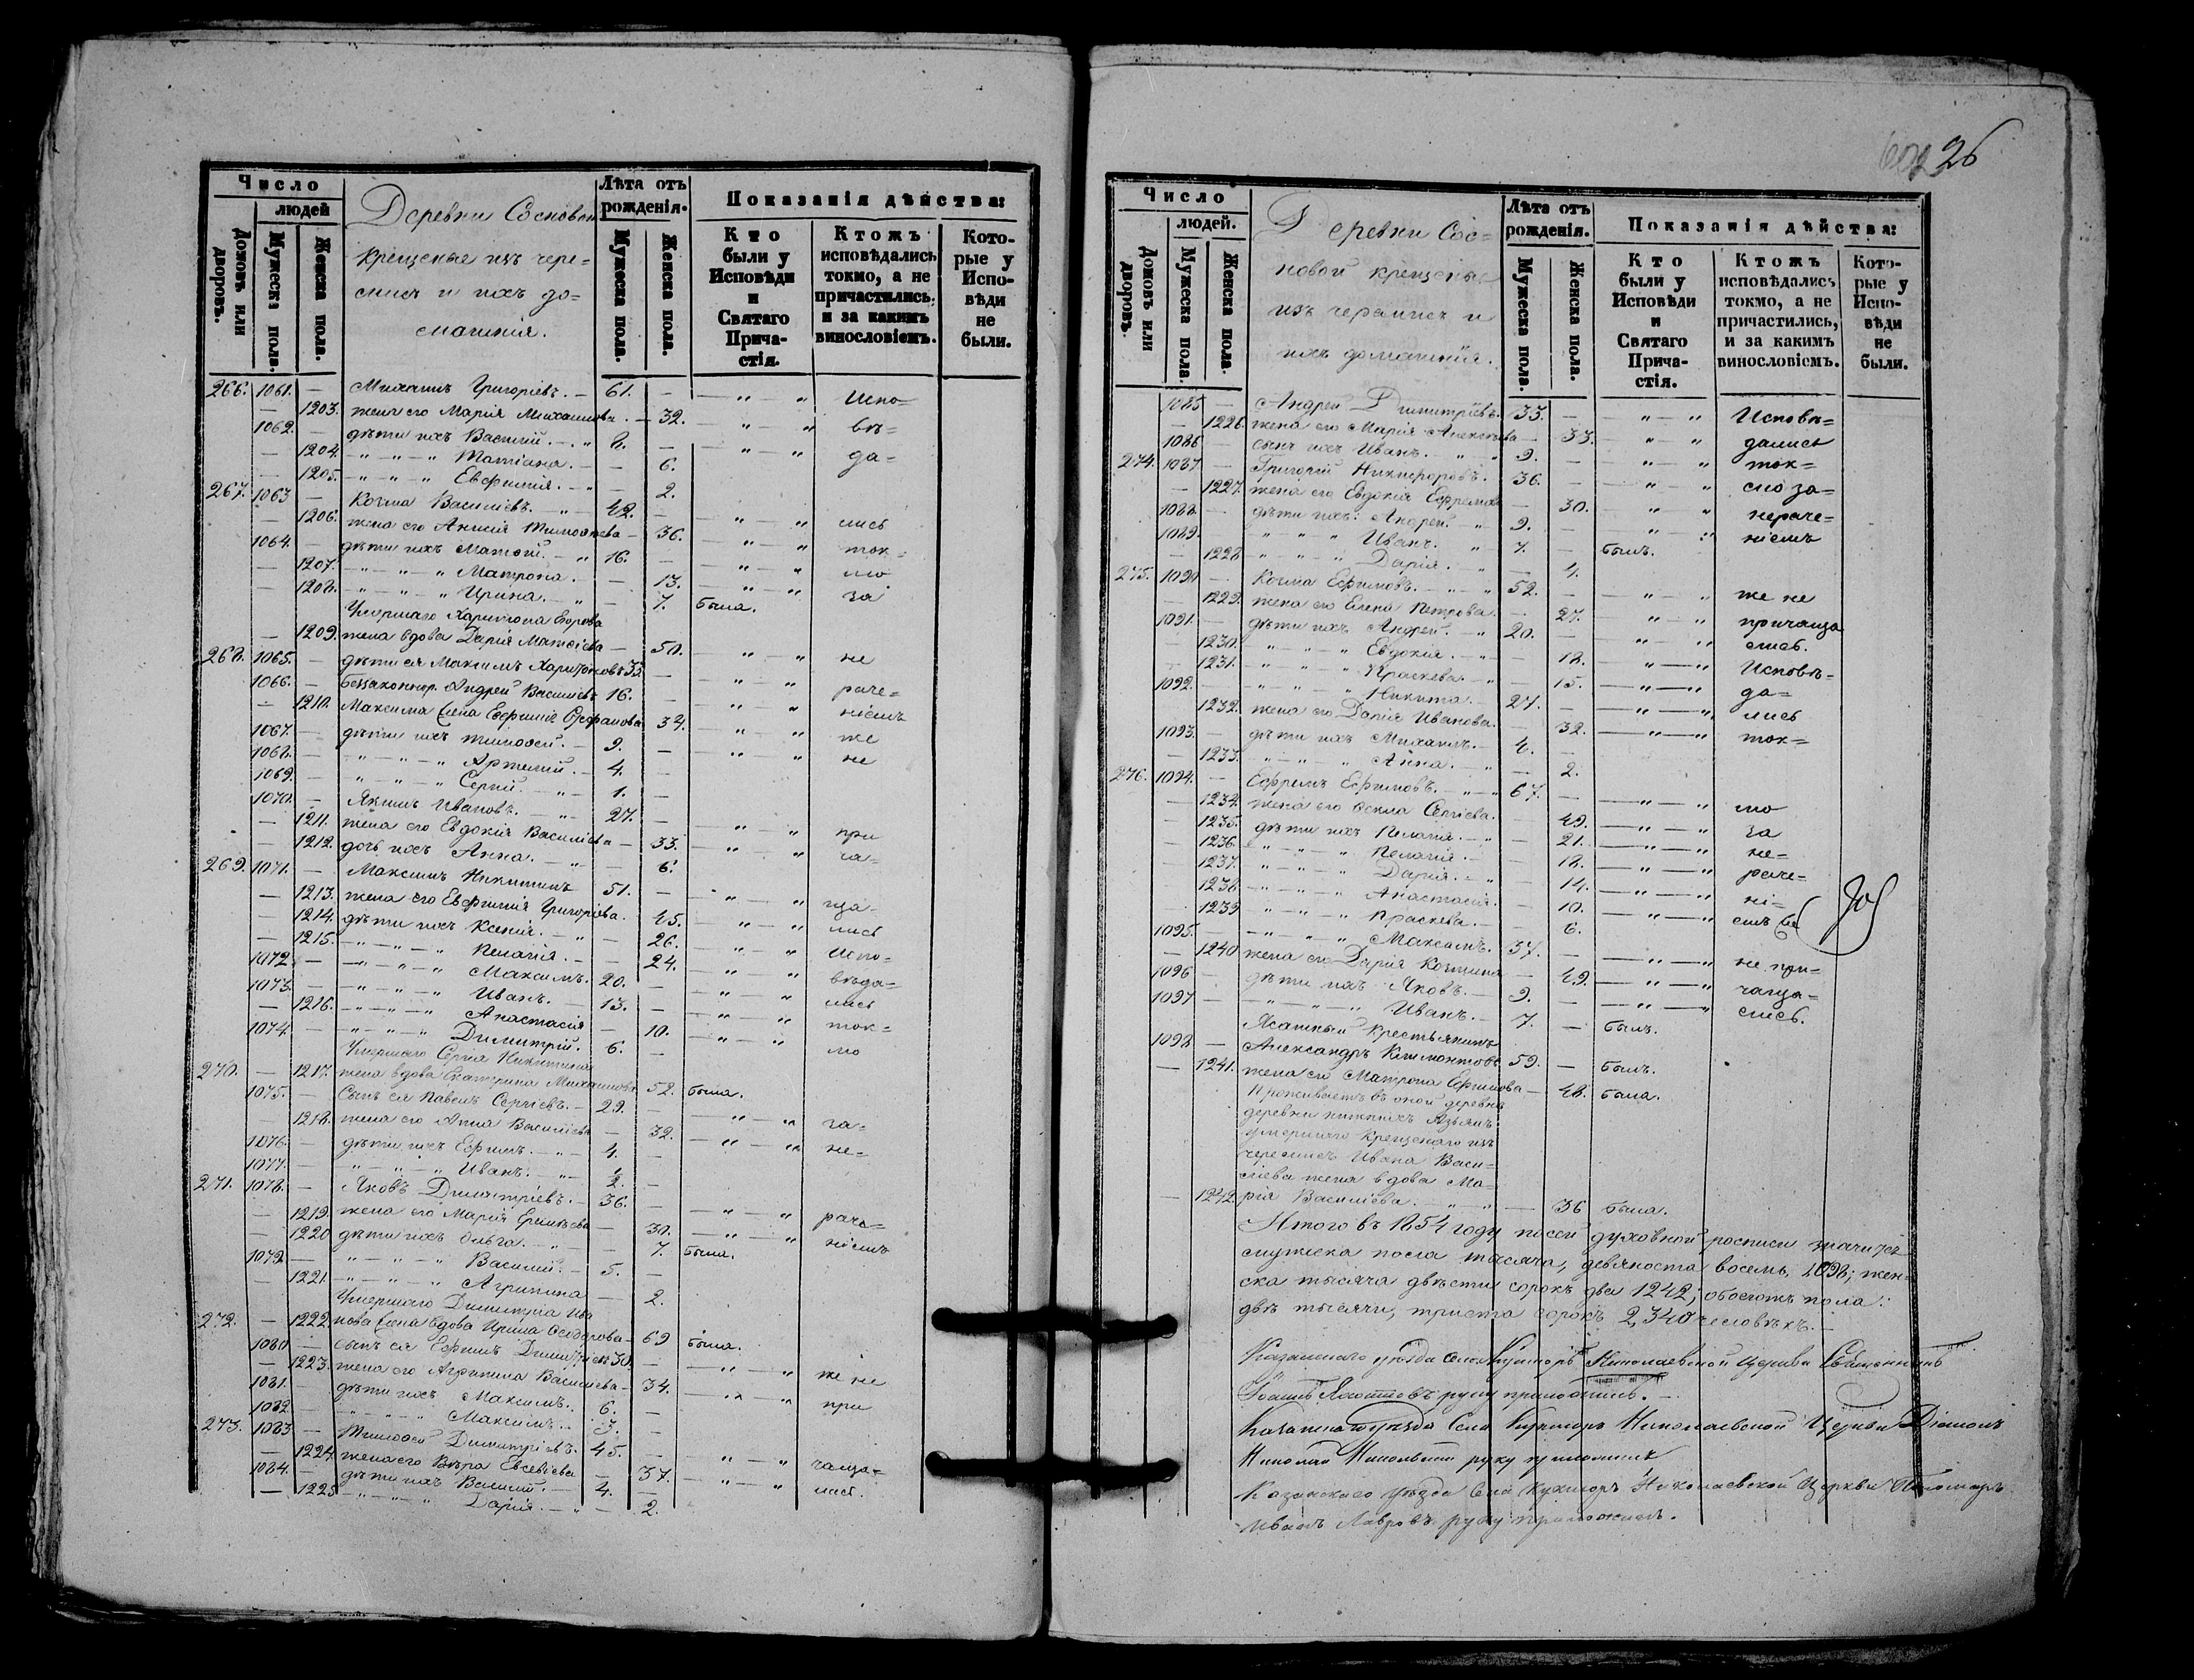 Число
людей
Домовъ или дворовъ.
Мужеска пола.
Женска пола.
Деревни Сосновой
крещеные изъ чере=
мисъ и ихъ до=
машнія.
Лѣта отъ
рожденія.
Мужеска пола.
Женска пола.
Показанія дѣйства:
Кто были у Исповѣди и Святаго Прича-стія.
Ктожъ исповѣдались токмо, а не причастились, и за какимъ винословіемъ.
Кото-рые у Испо-вѣди не были.
266. 1061. — Михаилъ Григорьевъ. — 61. — — " — " Испо=
— 1203. жена его Марія Михаилова. — 32. — " — " вѣ=
1062. — дѣти ихъ Василій. — " 8. — — " — " да=
— 1204. " — " — " Татіана. — — 6.
— 1205. " — " — " Евфимія. — " — 2.
267. 1063 — Козма Василіевъ. — " — 42. — — " — " лись
— 1206. жена его Анисія Тимофѣева — 36. — " — " ток=
1064. — дѣти ихъ Матвѣй. — " 16. — — " — " мо
— 1207. " — " — " Матрона. — 13. — " — " за
— 1208. " — " — " Ирина. — " — 7. была.
Умершаго Харитона Егорова
— 1209. жена вдова Дарія Матвѣева — 50. — " — " не
268. 1065. — дѣти ея Максимъ Харитоновъ 33. — — " — " раче=
1066. — беззаконнор. Андрей Василіевъ 16. — — " — " ніемъ
— 1210. Максима жена Евфимія Стефанова 34. — " — " же
1067. — дѣти ихъ Тимофей. — 9. — — " — " не
1068. — " — " — " Артемій. — 4. —
1069. — " — " — " Сергій. — " — 1. —
1070. — Якимъ Ивановъ. " — 27. — — " — " при
— 1211. жена его Евдокія Василіева — 33. — " — " ча=
— 1212. дочь ихъ Анна. — " — — 6.
269. 1071. — Максимъ Никитинъ 51. — — " — " ща-
— 1213. жена его Евфимія Григоріева. — 45. — " — " лись
— 1214. дѣти ихъ Ксенія. — " — 26. — " — " Испо=
— 1215. — " — " — " Пелагія. — — 24. — " — " вѣда=
1072. — " — " — " Максимъ. 20. — — " — " лись
1073. — " — " — " Иванъ. — 13. — — " — " ток=
— 1216. — " — " — " Анастасія — 10. — " — " мо
1074. — " — " — " Димитрій. 6. —
Умершаго Сергія Никитина
270. — 1217. жена вдова Екатерина Михаилова 52. была.
1075. — Сынъ ея Павелъ Сергіевъ. — 29. — — " — " за=
— 1218. жена его Анна Василіева — 32. — " — " не=
1076. — дѣти ихъ Ефимъ. — " — 4. —
1077. — " — " — " Иванъ. — " 2. —
271. 1078. — Яковъ Димитріевъ. — 36. — — " — " раче=
— 1219 жена его Марія Еремѣева — 30. — " — " ніемъ
— 1220 дѣти ихъ Ольга. — " — — 7. была.
1079. — " — " — " Василій. — 5. —
— 1221. — " — " — " Агрипина — 2.
Умершаго Димитрія Ива
272. — 1222. нова жена вдова Ирина Ѳеодорова — 69 была.
1080 — сынъ ея Ефимъ Димитріевъ 38. — — " — " же не
— 1223. жена его Агрипина Василіева — 34. — " — " при
1081. — дѣти ихъ Максимъ. 6. —
1082. " — " — " Максимъ. 3. —
273. 1083 — Тимофей Димитріевъ. 45. — — " — " чаща=
— 1224. жена его Вѣра Евсевіева — 37. — " — " лись.
1084. — дѣти ихъ Василій. — 4. —
— 1225 — " — " — " Дарія. — " — 2.
26
Число
людей.
Домовъ или дворовъ.
Мужеска пола.
Женска пола.
Деревни Сос=
новой крещеные
изъ черемисъ и
ихъ домашнія.
Лѣта отъ
рожденія.
Мужеска пола.
Женска пола.
Показанія дѣйства:
Кто были у Исповѣди и Святаго Прича-стія.
Ктожъ исповѣдались токмо, а не причастились, и за какимъ винословіемъ.
Кото-рые у Испо-вѣди не были.
1085 — Андрей Димитріевъ. 33. — — " — " Исповѣ=
— 1226. жена его Марія Алексѣева — 33. — " — " дались
1086 сынъ ихъ Иванъ. — " — 9. — — " — " ток=
274. 1087. — Григорій Никифоровъ. 36. — — " — " мо за=
— 1227. жена его Евдокія Ефремова — 30. — " — " нераче=
1088. — дѣти ихъ: Андрей. " 9. — — " — " ніемъ
1089. " — " — " Иванъ. " 7. — былъ.
— 1228 " — " — " Дарія. " — 4.
275. 1090 — Козма Ефимовъ. — " 52. — — " — " же не
— 1229. жена его Елена Петрова. — 27. — " — " причаща
1091. — дѣти ихъ Андрей. — " 20. — — " — " лись.
— 1230. " — " — " Евдокія. — " — 18. — " — " Исповѣ=
— 1231. " — " — " Праскева. — " — 15. — " — " да=
1092. " — " — " Никита. — 27. — — " — " лись
— 1232. жена его Дарія Иванова. — 32. — " — " ток=
1093. — дѣти ихъ Михаилъ. — 4. —
— 1233. — " — " — " Анна. — " — 2.
276. 1094. — Ефремъ Ефимовъ. — " — 67. — — " — " мо
— 1234. жена его Ѳекла Сергіева. — 49. — " — " за
— 1235. дѣти ихъ Пелагія. — " — 21. — " — " не=
1236. " — " — " Пелагія. — — 18. — " — " раче=
1237. " — " — " Дарія. — " — 14. — " — " ні=
1238. — " — " — " Анастасія. — 10. — " — " емъ же
1239 — " — " — " Праскева. — 6.
1095. — " — " — " Максимъ. 37. — — " — " не при=
— 1240 жена его Дарія Козмина — 49. — " — " чаща=
1096 — дѣти ихъ Яковъ. — 9. — — " — " лись.
1097 — " — " — " Иванъ. — 7. — былъ.
Ясашный крестьянинъ
1098 — Александръ Климонтовъ 59. — былъ.
— 1241. жена его Матрона Ефимова — 48. была.
Проживаетъ въ оной деревнѣ
деревни нижнихъ Азьялъ
умершаго крещенаго изъ
черемисъ Ивана Васи=
ліева жена вдова Ма=
— 1242. рія Василіева. — " — 36 была.
Итого въ 1854 году по сей духовной росписи значится
мужеска пола тысяча, девяноста восемь, 1098; жен=
ска тысяча двѣсти сорокъ два 1242; обоегожъ пола:
двѣ тысячи, триста сорокъ 2,340 человѣкъ. —
Казанскаго уѣзда села Кушморъ Николаевской церкви Священникъ
руку приложилъ. —
Казанскаго уѣзда Села Кушморъ Николаевской Церкви Діаконъ
Николай руку приложилъ
Казанскаго уѣзда Села Кушморъ Николаевской Церкви Пономарь
Иванъ Лавровъ руку приложилъ.